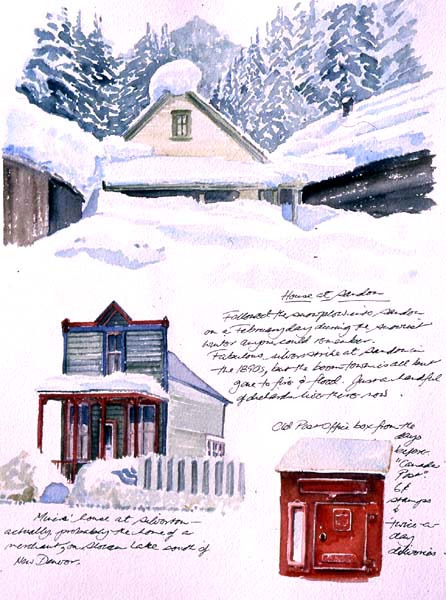 House at Sandon
Followed the snowplow into Sandon
on a February day during the snowiest
winter anyone could remember.
Fabulous silver strike at Sandon in
the 1890s, but the boom town is all but
gone to fire & flood. Just a handful
of diehards live there now.
Old Post Office box from the
days
before
"Canada
Post"
6¢
stamps
&
twice-a
day
deliveries.
Miners' house at Silverton –
actually probably the home of a
merchant, on Slocan Lake south of
New Denver.